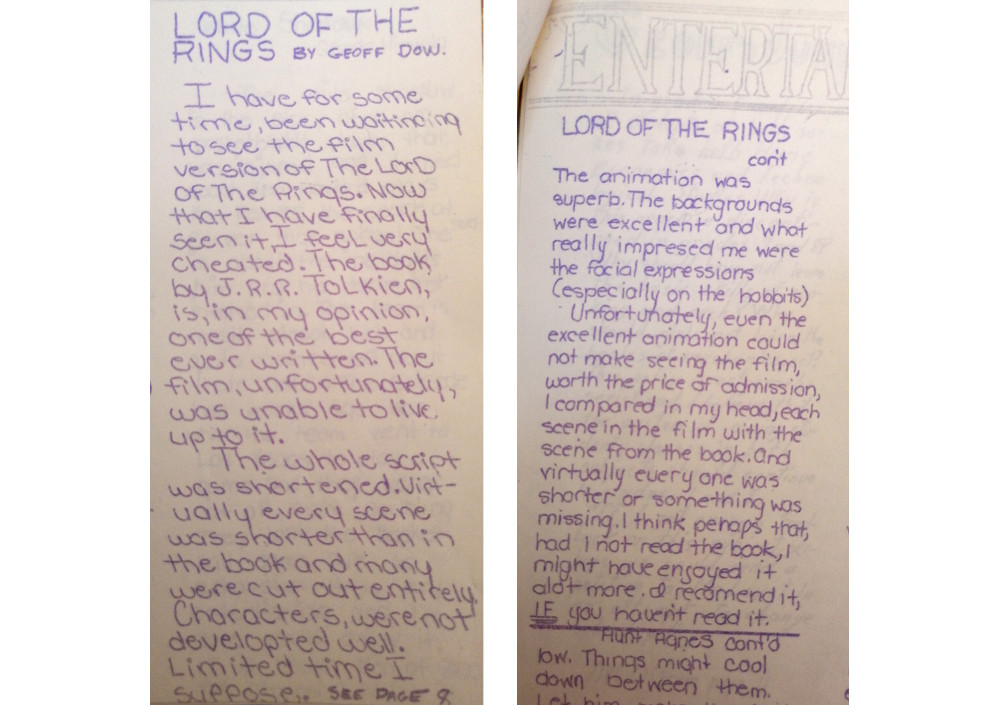 LORD OF THE
RINGS BY GEOFF DOW.
I have for some
time, been waitining
to see the film
version of The Lord
of The Rings. Now
that I have finally
seen it, I feel very
cheated. The book
by J.R.R. Tolkien,
is, in my opinion,
one of the best
ever written. The
film, unfortunately,
was unable to live
up to it.
The whole script
was shortened. Virt-
ually every scene
was shorter than in
the book and many
were cut out entirely.
Characters, were not
developted well.
Limited time I
suppose.. SEE PAGE 8
ENTERTA
LORD OF THE RINGS
con't
The animation was
superb. The backgrounds
were excellent and what
really impresed me were
the facial expressions
(especially on the hobbits)
Unfortunately, even the
excellent animation could
not make seeing the film,
worth the price of admission,
I compared in my head, each
scene in the film with the
scene from the book. And
virtually every one was
shorter or something was
missing. I think pehaps that,
had I not read the book, I
might have enjoyed it
alot more. I recomend it,
IF you haven't read it.
Aunt Agnes cont'd
low. Things might cool
down between them.